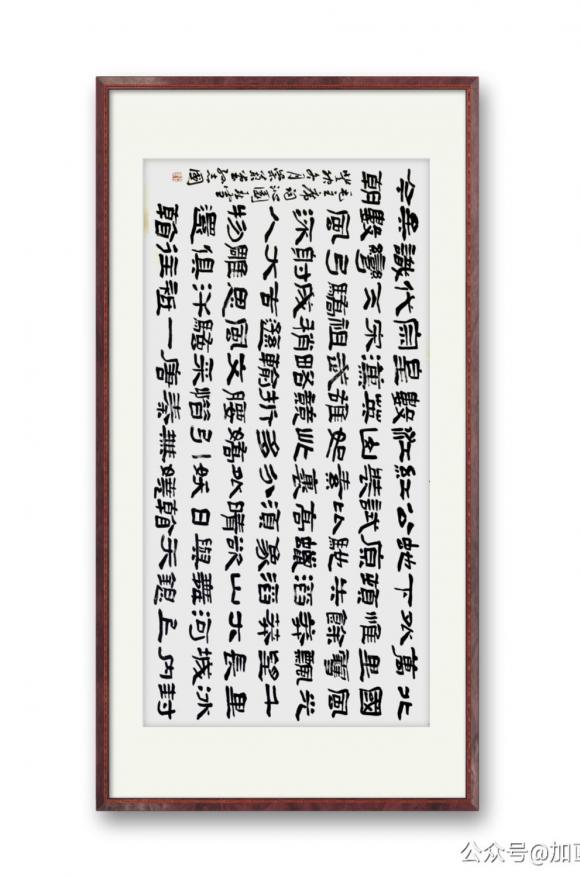 北國風光千里冰封
萬里雪飄望長城內
外惟餘莽莽大河上
下頓失滔滔山舞銀
蛇原馳蠟象欲與天
公試比高須晴日看
紅裝素裹分外妖嬈
江山如此多嬌引無
數英雄競折腰惜秦
皇漢武略輸文采唐
宗宋祖稍遜風騷一
代天驕成吉思汗祇
識彎弓射大雕俱往
矣數風流人物還看
今朝
毛主席詞沁園春雪
六月
公众号@加